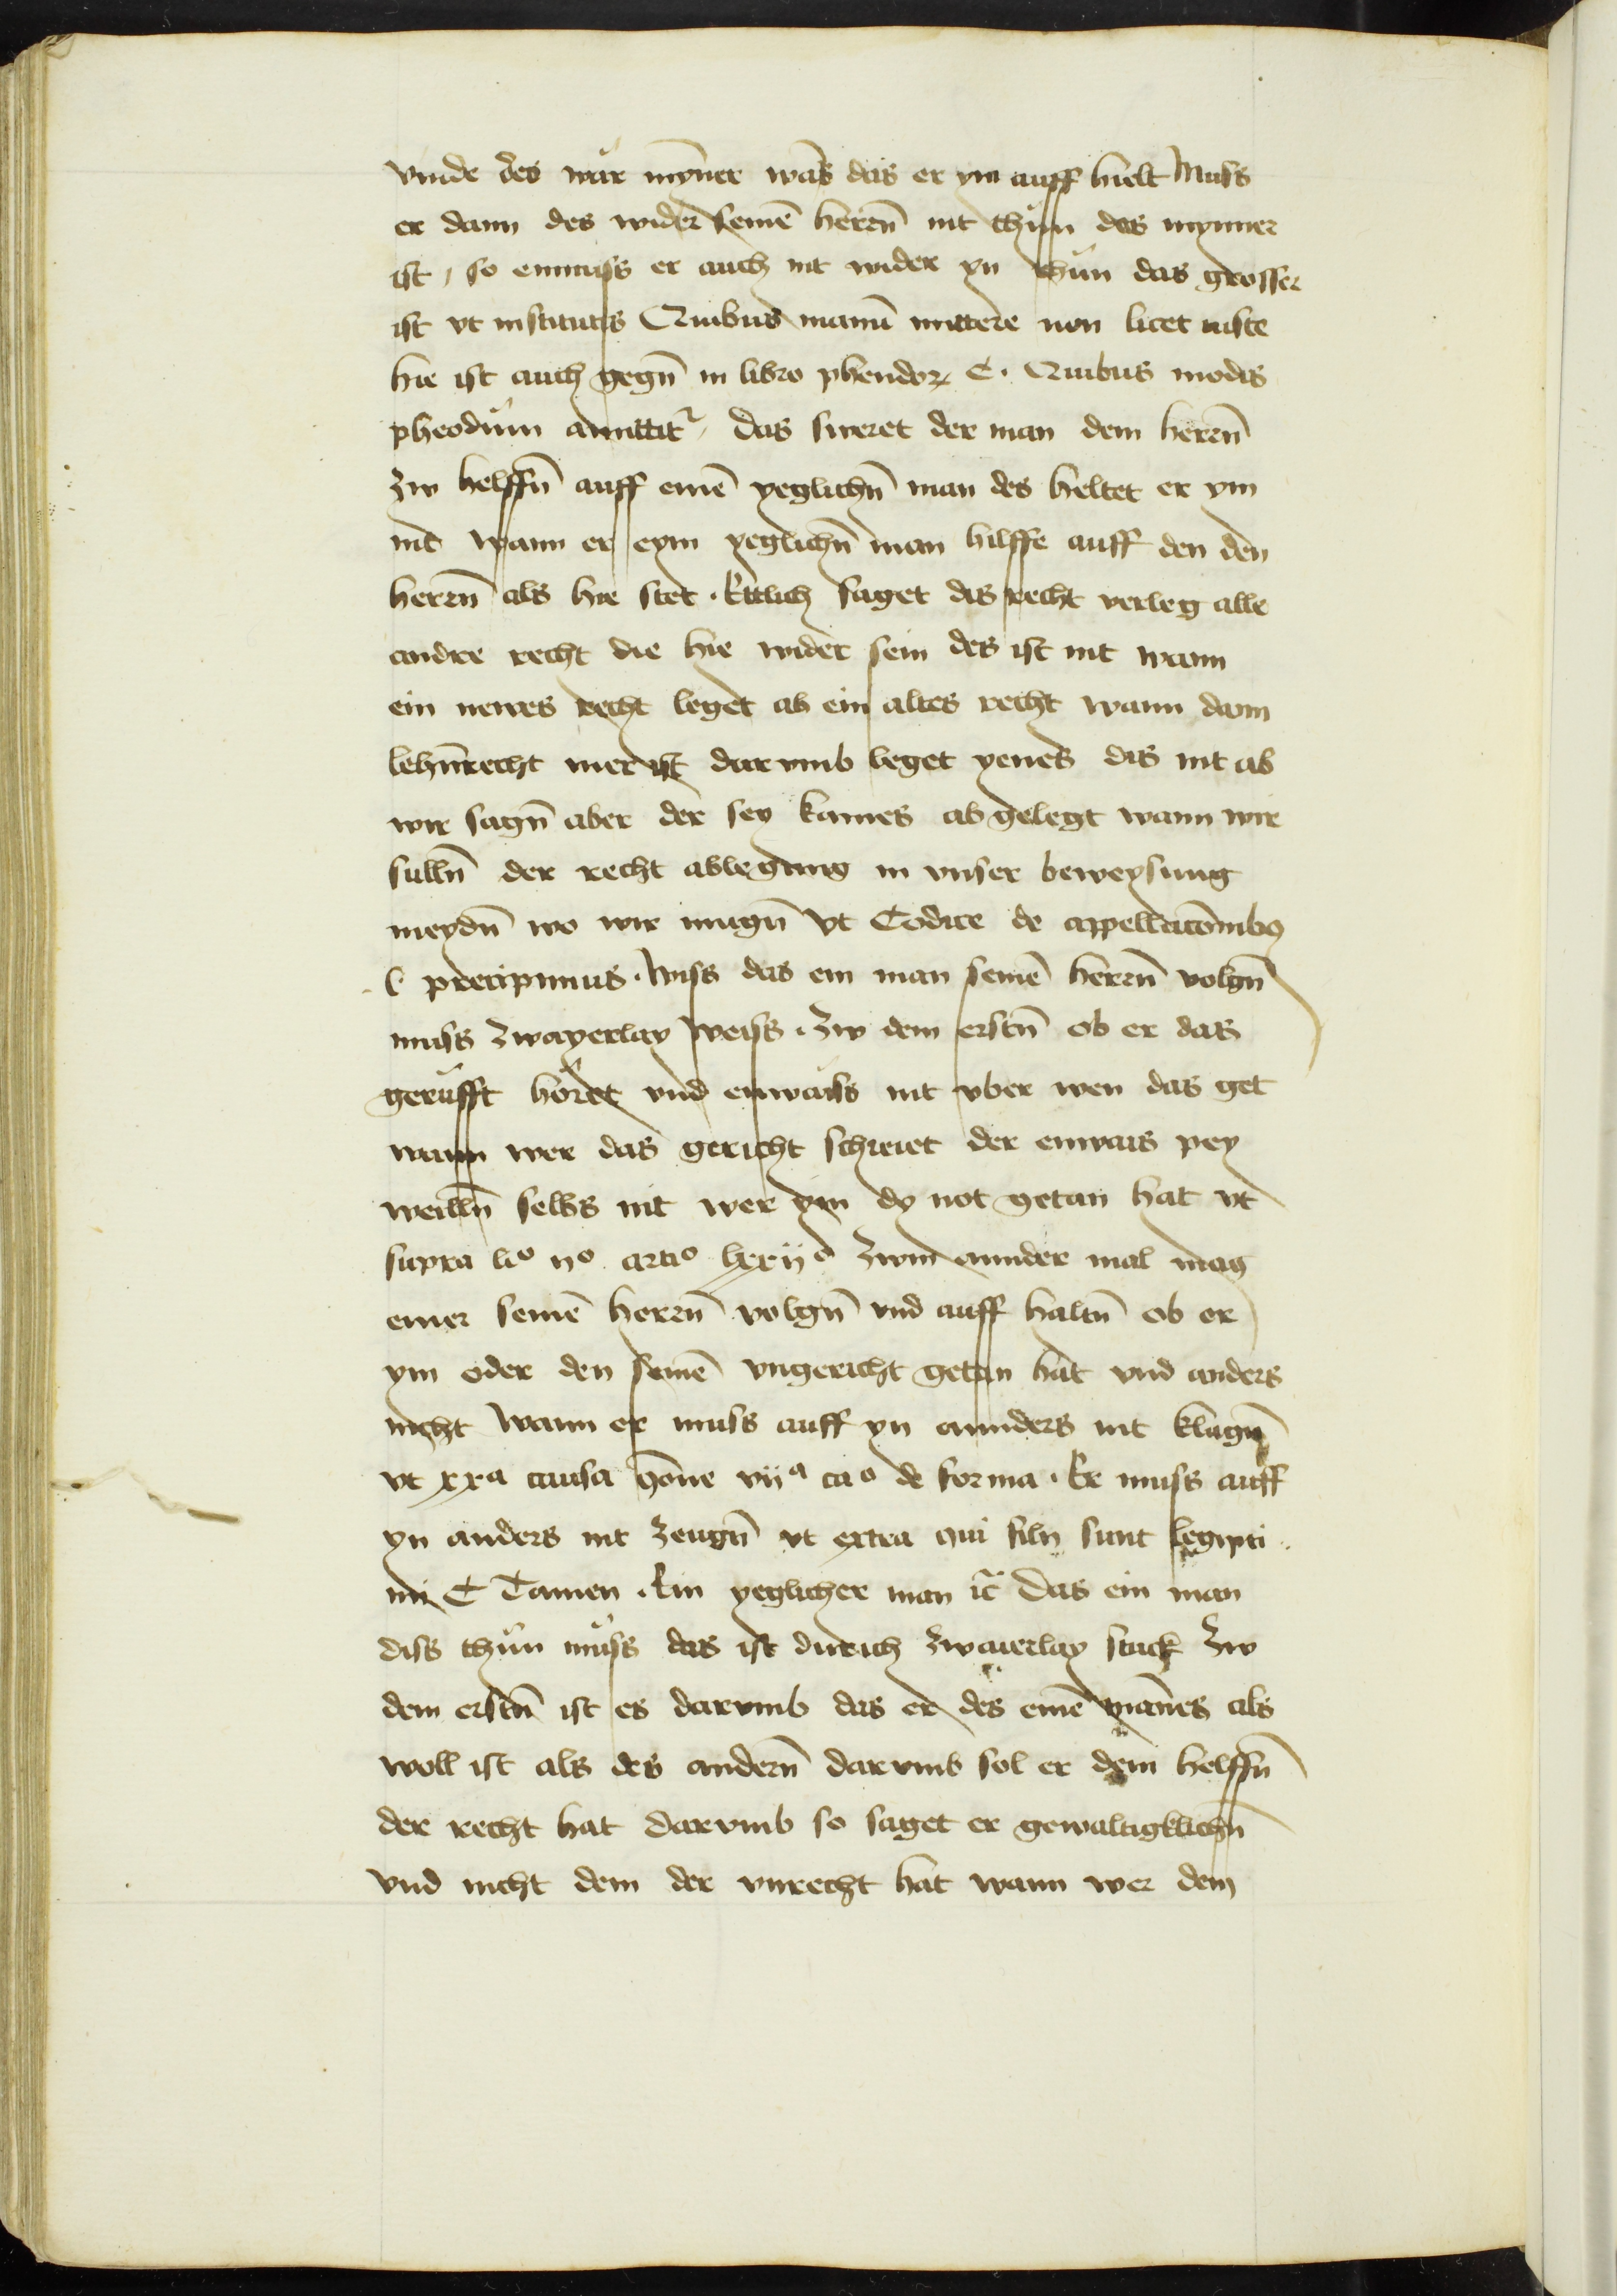 vnnde des wär mynner wäs das er ym auff hielt Muss
er dann des wider seinē herrn̄ nit thün das mynner
ist / so enmuss er auch nit wider yn thün das grosser
ist vt institutis Quibus manū mittere non licet iuste
hie ist auch gegn̄ in libro pheudoꝝ C. Quibus modis
pheodüm amittitᷣ / Das sweret der man dem herrn̄
Zw helffn̄ auff einē yeglichn̄ man des heltet er ym
nit Wann er eym yeglichn̄ man hilffe auff den den
herrn̄ als hie stet . Ettlich saget dis recht verleg alle
andre recht die hie wider sein des ist nit wann
ein newes recht leget ab ein altes recht wann dann
lehn̄recht mer ist darvmb leget yenes das nit ab
wir sagn̄ aber der sey kaines ab gelegt wann wir
sulln̄ der recht ablegung in vnser beweysung
meydn̄ wo wir mugn̄ Vt Codice de appellacōnibꝯ
l precipimus . Wiss das ein man seinē herrn̄ volgn̄
muss Zwayerlay Weiss . Zw dem erstn̄ ob er das
gerüfft höret vnd enwaiss nit vber wen das get
wann wer das gericht schreiet der enwais pey
weilln̄ selbs nit wer ym dy not getan hat vt
supra lᵒ ijᵒ artᵒ lxxijᵒ Zwm annder mal mag
einer seinē herrn̄ volgn̄ vnd auff haltn̄ ob er
ym oder den seinē vngericht getan hat vnd anders
nicht Wann er muss auff yn annders nit klagn̄
vt xxᵃ causa qōne vijᵃ caᵒ de forma . Er muss auff
yn anders nit Zeugn̄ vt extra qui filij sunt legipti
mi C Tamen . Ein yeglicher man ic̄ Das ein man
diss thün müss das ist durich Zwaierlay stuck Zw
dem erstn̄ ist es darvmb das er des einē mānes als
woll ist als des andern̄ darvmb sol er dem helffn̄
der recht hat Darvmb so saget er gewaltigklichn̄
Vnd nicht dem der vnrecht hat wann wer dem